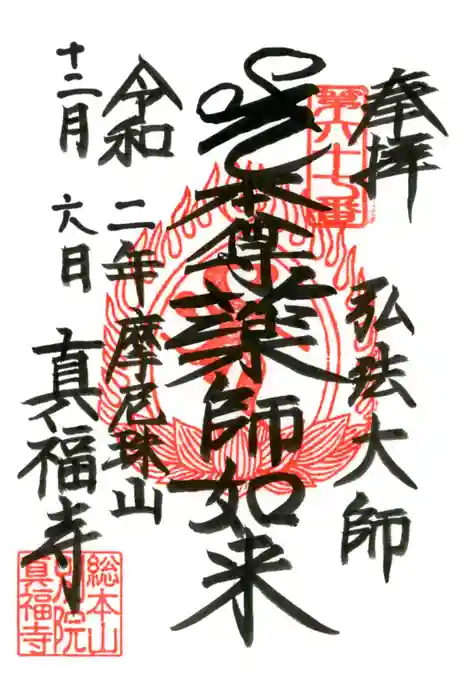 奉拝
弘法大師
第六十七番
本尊薬師如来
令和二年
十二月六日
摩尼珠山
真福寺
総本山
別院
真福寺